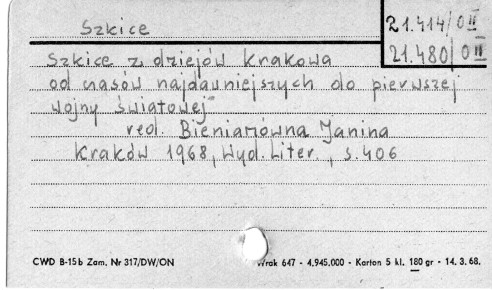 Szkice
21.414/O II
21.480/O II
Szkice z dziejów Krakowa
od czasów najdawniejszych do pierwszej
wojny światowej
red. Bieniarzówna Janina
Kraków 1968, Wyd. Liter., s. 406
CWD B-15b Zam. Nr 317/DW/ON
Wrak 647 - 4.945.000 - Karton 5 kl. 180 gr - 14. 3. 68.